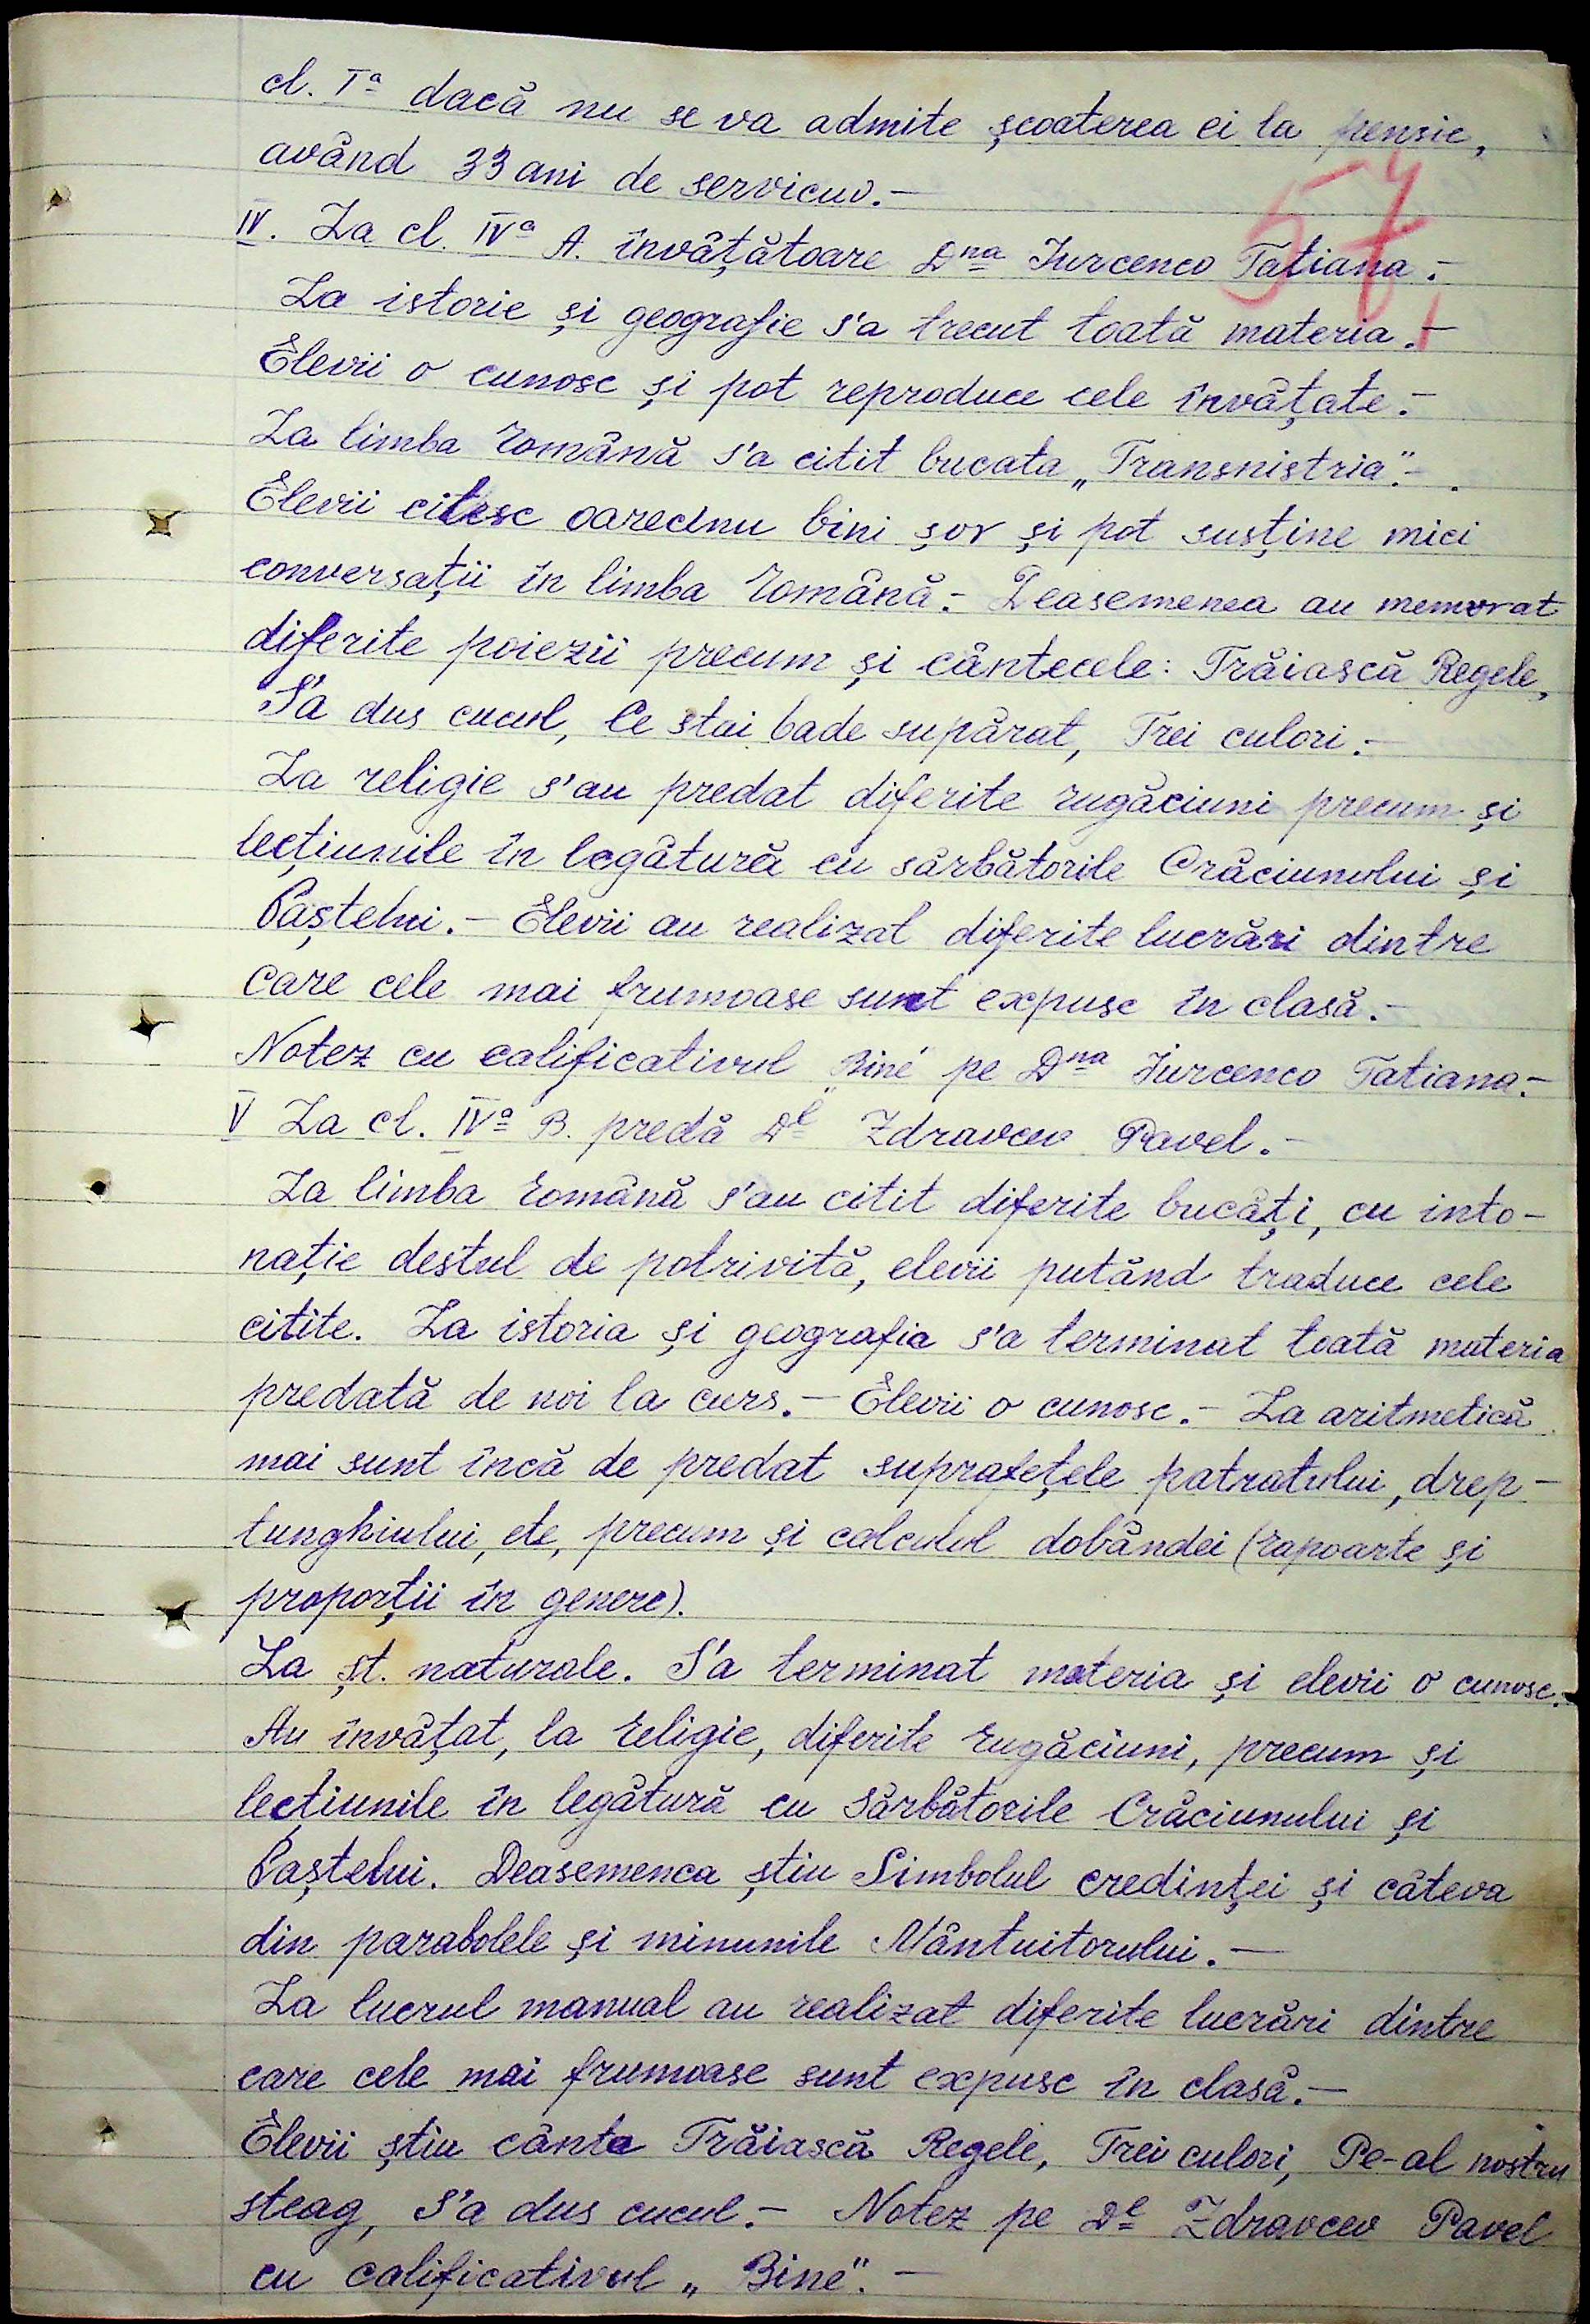 cl. Iª dacă nu se va admite școaterea ei la pensie,
având 33 ani de serviciu.-
57
IV. La cl. IVª A. învățătoare Dna Iurcenco Tatiana.-
La istorie și geografie s'a trecut toată materia.-
Elevii o cunosc și pot reproduce cele învățate.-
La limba română s'a citit bucata „Transnistria".-
Elevii citesc oarecum bini șor și pot susține mici
conversații în limba română.- Deasemenea au memorat
diferite poiezii precum și cântecele: Trăiască Regele,
S'a dus cucul, Ce stai bade supărat, Trei culori.-
La religie s'au predat diferite rugăciuni precum și
lecțiunile în legătură cu sărbătorile Crăciunului și
Paștelui.- Elevii au realizat diferite lucrări dintre
care cele mai frumoase sunt expuse în clasă.-
Notez cu calificativul „Bine" pe Dna Iurcenco Tatiana.-
V La cl. IVª B. predă Dl Zdravcev Pavel.-
La limba română s'au citit diferite bucăți, cu into-
nație destul de potrivită, elevii putând traduce cele
citite. La istoria și geografia s'a terminat toată materia
predată de noi la curs.- Elevii o cunosc.- La aritmetică
mai sunt încă de predat suprafețele patratului, drep-
tunghiului, etc, precum și calculul dobândei (rapoarte și
proporții în genere).
La șt. naturale. S'a terminat materia și elevii o cunosc.-
Au învățat, la religie, diferite rugăciuni, precum și
lecțiunile în legătură cu Sărbătorile Crăciunului și
Paștelui. Deasemenea știu Simbolul credinței și câteva
din parabolele și minunile Mântuitorului.-
La lucrul manual au realizat diferite lucrări dintre
care cele mai frumoase sunt expuse în clasă.-
Elevii știu cânta Trăiască Regele, Trei culori, Pe-al nostru
steag, S'a dus cucul.- Notez pe Dl Zdravcev Pavel
cu calificativul „Bine".-